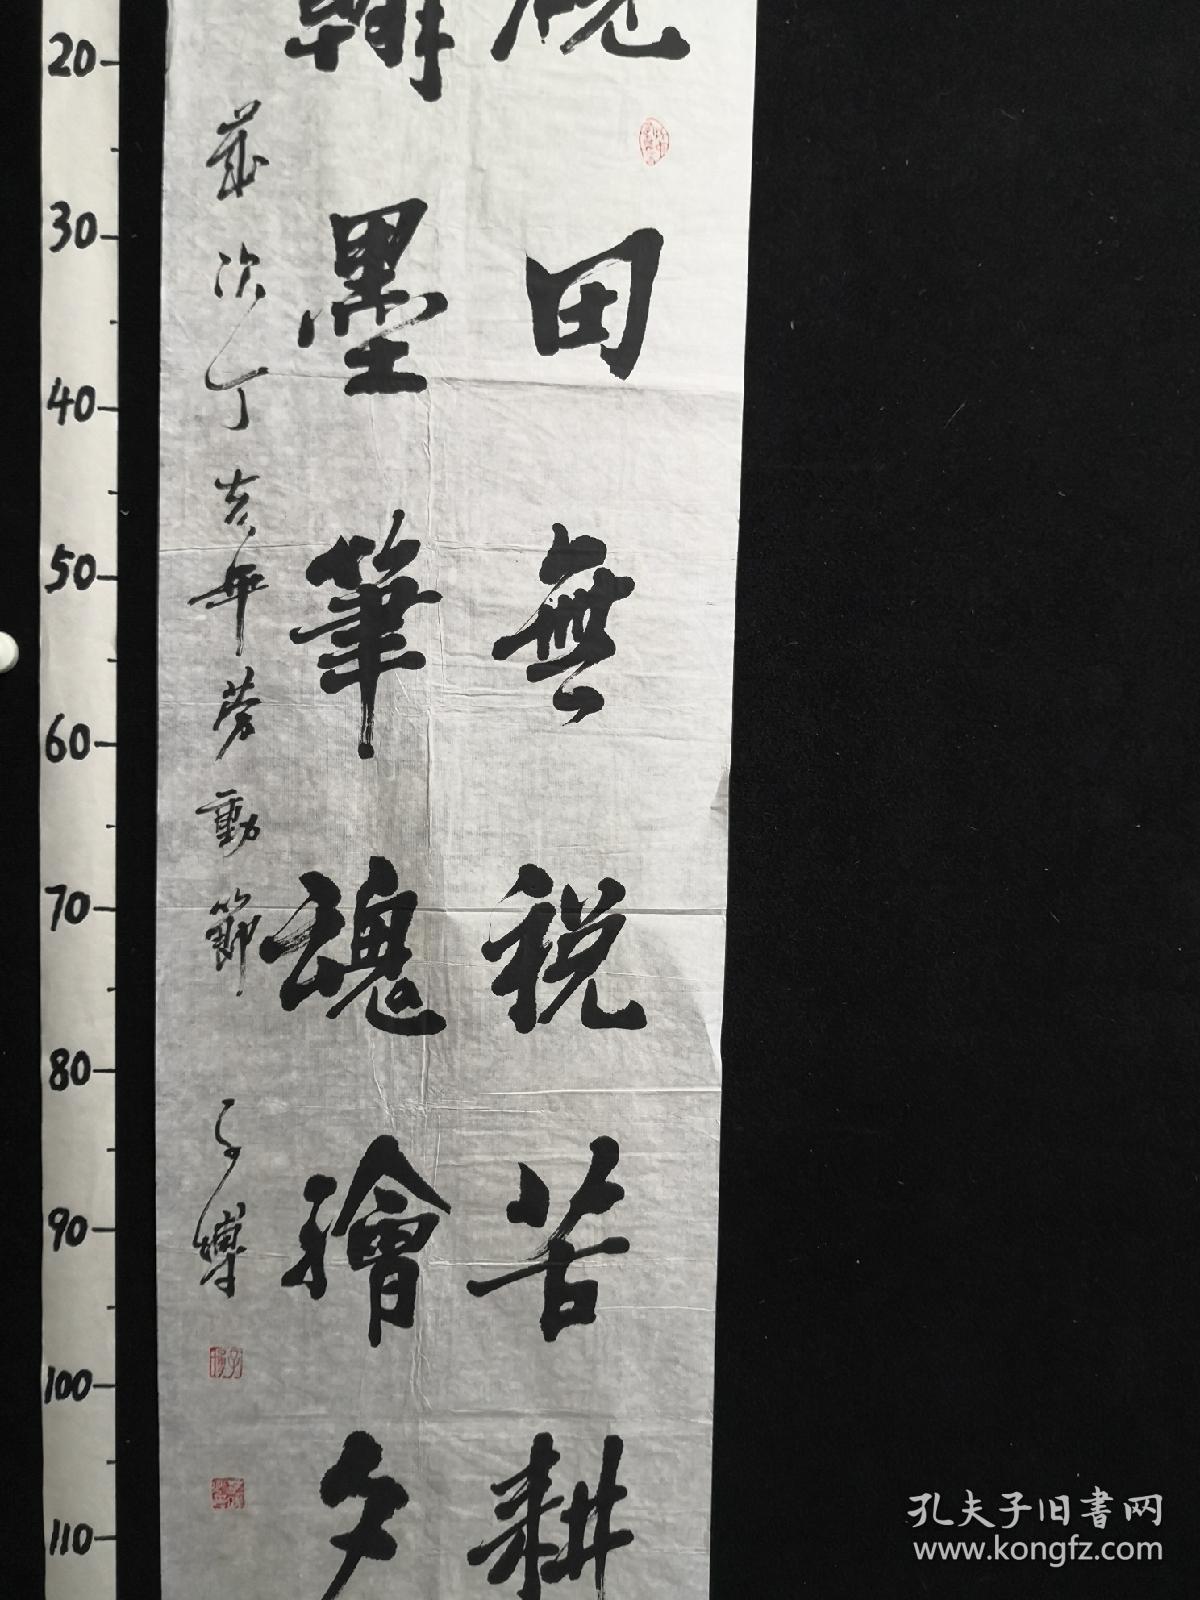 硯田無税苦耕
翰墨筆魂繪夕
歲次丁亥年劳動節 子博
20
30
40
50
60
70
80
90
100
110
孔夫子旧書网
www.kongfz.com